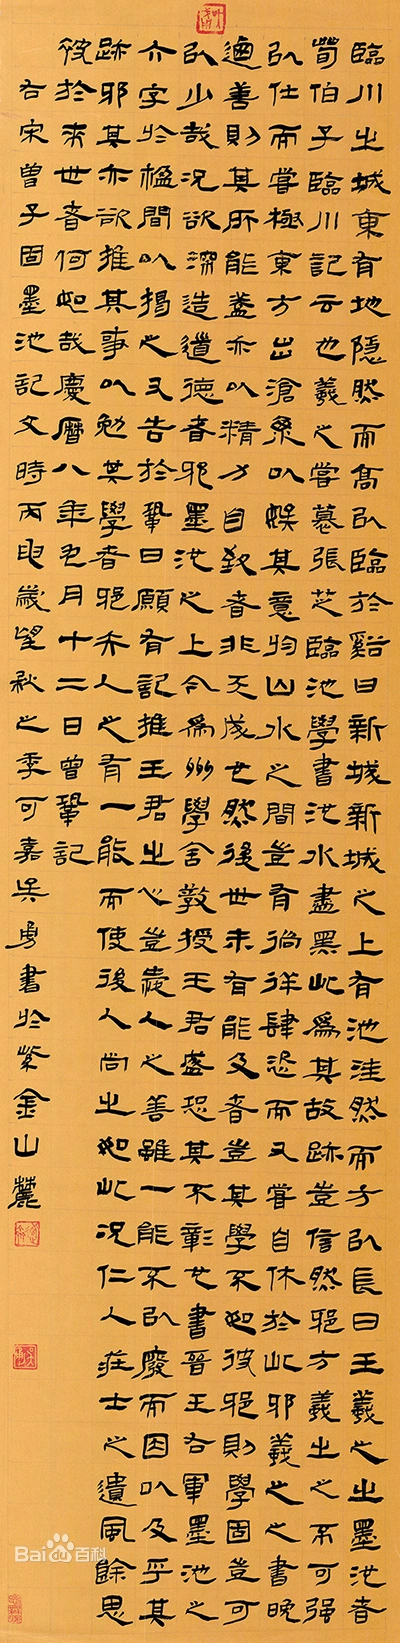 臨川之城東有地隱然而高以臨於谿曰新城新城之上有池洼然而方以長曰王羲之之墨池者
荀伯子臨川記云也羲之嘗慕張芝臨池學書池水盡黑此爲其故跡豈信然邪方羲之之不可强
以仕而嘗極東方出滄海以娛其意於山水之間豈有徜徉肆恣而又嘗自休於此邪羲之之書晚
迺善則其所能蓋亦以精力自致者非天成也然後世未有能及者豈其學不如彼邪則學固豈可
以少哉況欲深造道德者邪墨池之上今爲州學舍教授王君盛恐其不彰也書晉王右軍墨池之
六字於楹間以揭之又告於鞏曰願有記推王君之心豈愛人之善雖一能不以廢而因以及乎其
跡邪其亦欲推其事以勉其學者邪夫人之有一能而使後人尚之如此況仁人莊士之遺風餘思
被於來世者何如哉慶曆八年九月十二日曾鞏記
右宋曾子固墨池記文時丙申歲望秋之季可嘉吴勇書於紫金山麓
Bai百科